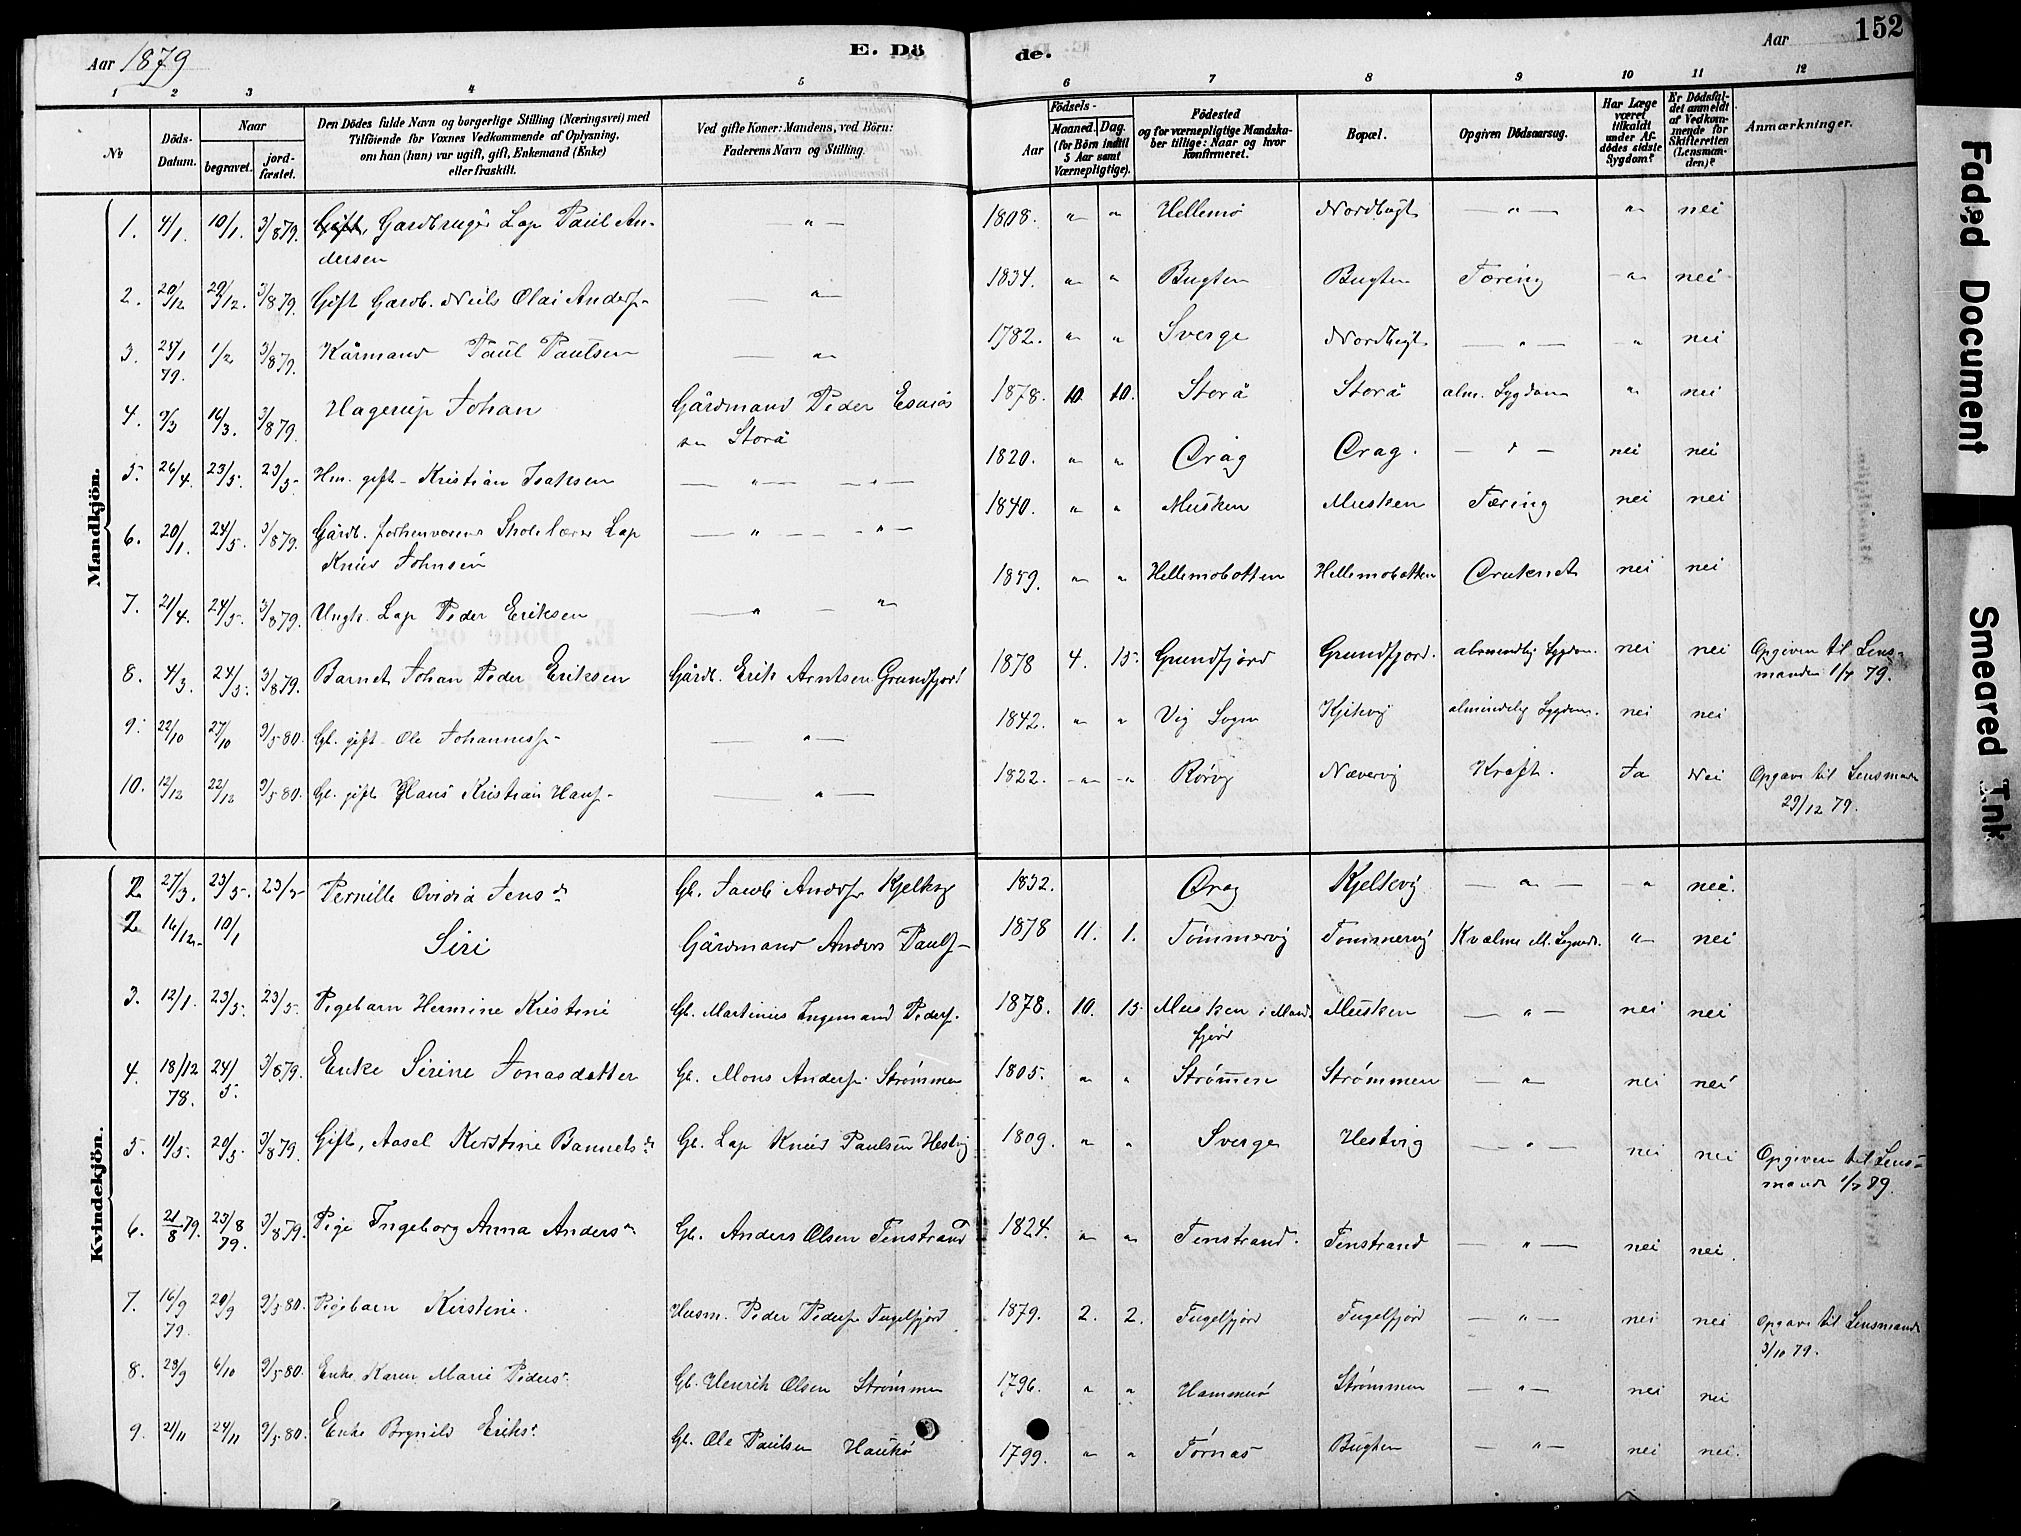 Aar 1879
E. Dö
de.
Aar
152
1 2 3 4 5 6 7 8 9 10 11 12
№
Döds-Datum.
Naar
begravet.
jordfæstet.
Den Dödes fulde Navn og borgerlige Stilling (Næringsvei) med
Tilföiende for Voxnes Vedkommende af Oplysning,
om han (hun) var ugift, gift, Enkemand (Enke)
eller fraskilt.
Ved gifte Koner: Mandens, ved Börn:
Faderens Navn og Stilling.
Födsels-
Aar
Maaned.
Dag.
(for Börn indtil
5 Aar samt
Værnepligtige).
Födested
og for værnepligtige Mandska-
ber tillige: Naar og hvor
konfirmeret.
Bopæl.
Opgiven Dödsaarsag.
Har Læge
været
tilkaldt
under Af-
dödes sidste
Sygdom?
Er Dödsfal-
det anmeldt
af Vedkom-
mende for
Skifteretten
(Lensman-
den)?
Anmærkninger.
Mandkjön.
1. 4/1. 10/1. 3/8 79. Gift, Gardbruger Lap Paul An- — " — 1808. " " Hellemo Nordbugt — " — " nei
dersen
2. 20/12 29/12. 3/8 79. Gift Gardb. Neils Olai Anders- — " 1834. " " Bugten Bugten Tæring " nei
3. 1/2 3/8 79. Kårmand Paul Paulsen — " 1782. " " Sverge Nordbugt — " — " nei
79.
4. 9/3 16/3. 3/8 79. Hagerup Johan Gårdmand Peder Esaias 1878. 10. 10. Storå Storå alm. Sygdom " nei
sen Storå
5. 26/4. 23/5. 23/5 Hm. gift - Kristian Isaksen — " — — " — 1820. " " Drag Drag. — " — nei nei
6. 20/1. 24/5. 3/8 79. Gårdb. forhenværene Skolelærer Lap — " — — " — 1840. " " Musken Musken Tæring nei nei
Knud Johnsen
7. 21/4. 24/5. 3/8 79. Ungk. Lap Peder Eriksen — " — " 1859. " " Hellemobotten Hellemobotten Druknet nei nei
8. 4/3. 24/5. 3/8 79. Barnet Johan Peder Eriksen Gårdb. Erik Arntsen Grundfjord 1878 4. 15. Grundfjord Grundfjord. almindelig Sygdom. nei nei Opgiven til Lens-
manden 1/7 79.
9. 22/10 27/10 9/5 80. Gb. gift - Ole Johannesf- — " — 1842. " " Vig Sogn almindelig Sygdom. nei nei
10. 12/12 22/12 9/5 80. Gb. gift Hans Kristian Hansf- — " — 1822. " " Rørvg Nævervig Kræft. Ja Nei Opgave til Lensmanden
29/12 79.
Kvindekjön.
2 27/3. 23/5. 23/5 Pernille Ovidia Jens dr Gb. Jacob Andersf Kjelkvg 1832. Drag Kjelkvig — " — " nei.
2 16/12- 10/1 Siri Gårdmand Anders Paulsf- 1878 11. 1. Tømmervig Tommervig " nei
3. 12/1. 23/5. 23/5. Pigebarn Hermine Kristine Gb. Martinus Ingemand Pedersf. 1878. 10. 15. Musken i Mand- Musken — " — nei nei
fjord
4. 18/12 24/5. 3/8 79. Enke Sirine Jonasdatter Gb. Mons Andersf. Strømmen 1805. " " Strømmen Strømmen — " nei nei
78.
5. 11/5. 20/5 3/8 79. Gift, Aasel Kerstine Bannets dr Gb. Lap Knud Paulsen Hestvig 1809. " " Sverge Hestvig — " nei nei Opgiven til Lens-
mand 1/7 79.
6. 21/8 79. 23/8 3/8 79. Pige Ingeborg Anna Anders dr Gb. Anders Olsen Tenstrand 1824. " " Tenstrand. Tenstrand — " — nei nei.
79.
7. 16/9 20/9 9/5 80. Pigebarn Kerstine. Husm. Peder Pedersf Fugelfjord 1879. 2. 2. Fugelfjord Fugelfjord — " — nei nei Opgave til Lensmand
79. 3/10 79.
8. 28/9 6/10 9/5 80. Enke Karen Marie Peders dr Gb. Henrik Olsen Strømmen 1796. " " Hammerø Strømmen — " — nei nei
9. 21/11 24/11 9/5 80. Enke Brynild Eriks dr Gb. Ole Paulsen Haukø 1799. " " Tørnæs Bugten — " — nei nei.
Faded Document
Smeared Ink